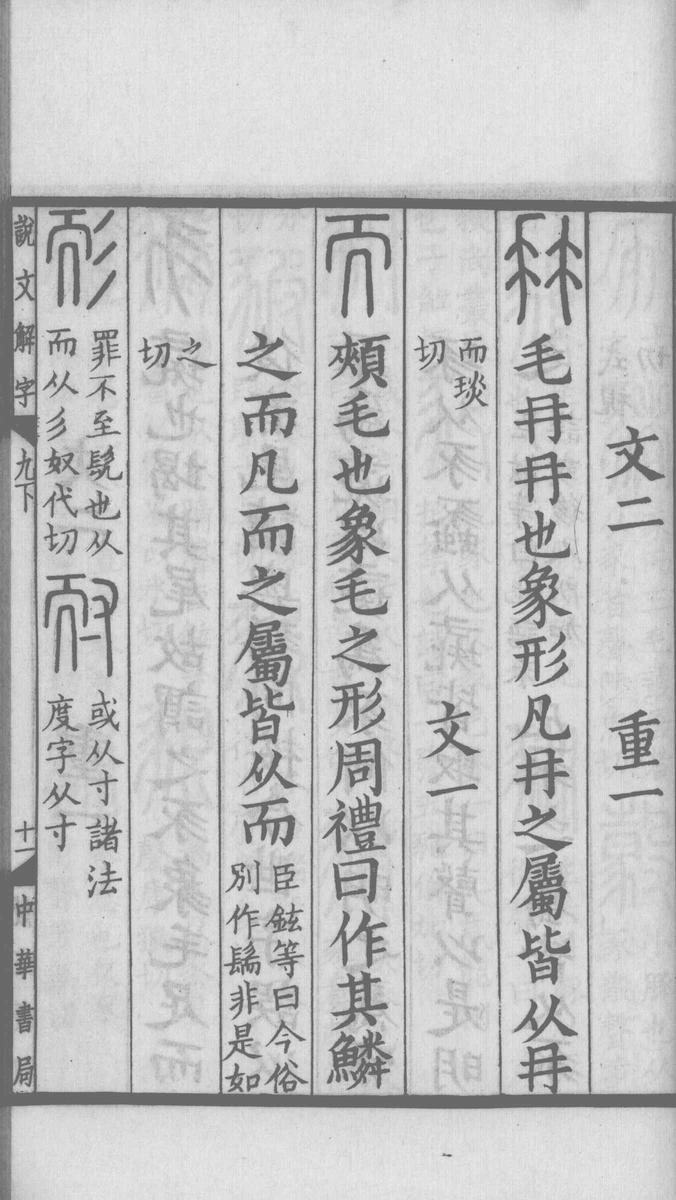 文二　重一
冄毛冄冄也象形凡冄之屬皆从冄
而琰
切
文一
而頰毛也象毛之形周禮曰作其鱗
之而凡而之屬皆从而
臣鉉等曰今俗
別作髵非是如
之
切
耏
罪不至髡也从
而从彡奴代切
耐
或从寸諸法
度字从寸
說文解字　九下　十一　中華書局